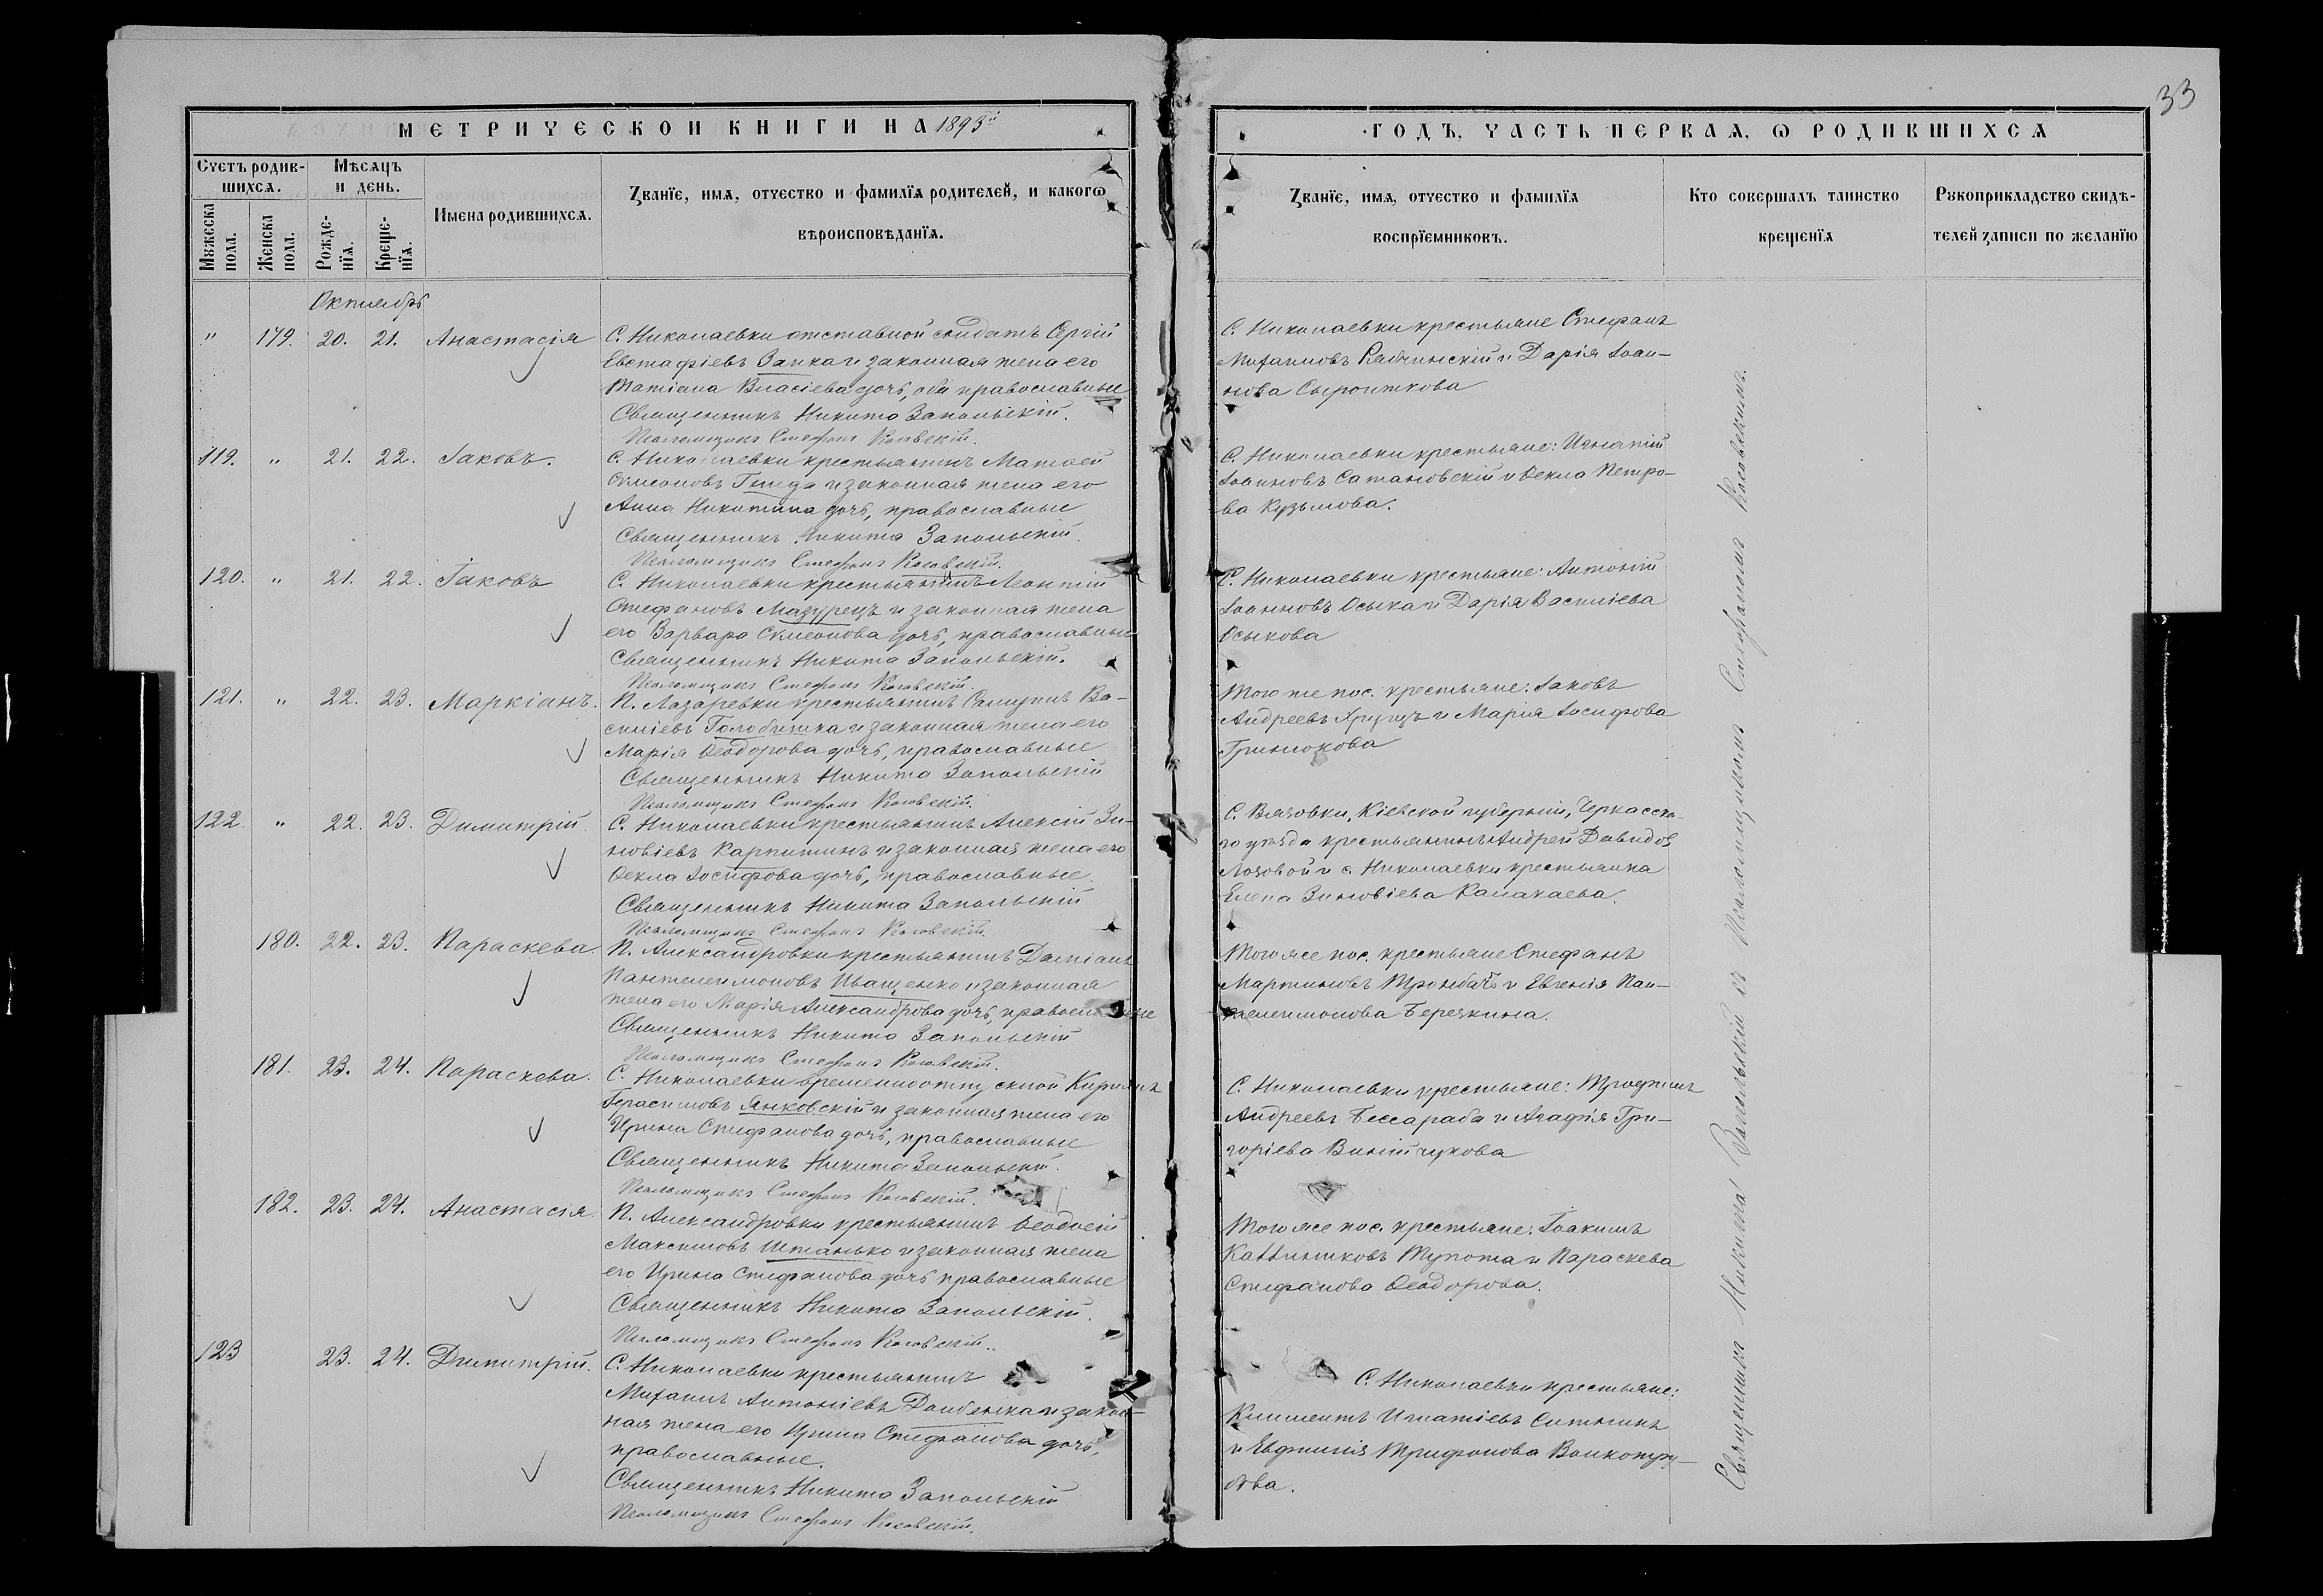 33
МЕТРИЧЕСКОЙ КНИГИ НА 1893й
ГОДЪ, ЧАСТЬ ПЕРВАЯ, Ѡ РОДИВШИХСЯ
Счетъ родив-
шихся.
Мѣсяцъ
и день.
Мужеска
пола.
Женска
пола.
Рожде-
нїя.
Креще-
нїя.
Имена родившихся.
Званїе, имя, отчество и фамилїя родителей, и какогѡ
вѣроисповѣданїя.
Званїе, имя, отчество и фамилїя
воспрїемниковъ.
Кто совершалъ таинство
крещенїя
Рукоприкладство свидѣ-
телей записи по желанїю
Октябрь
" 179. 20. 21. Анастасія
С. Николаевки отставной солдатъ Сергій
Евстафіевъ Заика и законная жена его
Татіана Власіева дочь, оба православные
Священникъ Никита Запольскій.
Псаломщикъ Стефанъ Косовскій.
С. Николаевки крестьяне Стефанъ
Михаиловъ и Дарія Іоан-
нова Сыроиткова
119. " 21. 22. Іаковъ.
С. Николаевки крестьянинъ Матѳей
Симеоновъ и законная жена его
Анна Никитина дочь, православные
Священникъ Никита Запольскій.
Псаломщикъ Стефанъ Косовскій.
С. Николаевки крестьяне: Игнатій
Іоанновъ Сатановскій и Ѳекла Петро-
ва Кузьмова.
120. " 21. 22. Іаковъ
С. Николаевки крестьянинъ Леонтій
Стефановъ Мазурецъ и законная жена
его Варвара Симеонова дочь, православные
Священникъ Никита Запольскій.
Псаломщикъ Стефанъ Косовскій.
С. Николаевки крестьяне: Антоній
Іоанновъ Осыка и Дарія Василіева
Осыкова
121. " 22. 23. Маркіанъ.
П. Лазаревки крестьянинъ Ва-
силіевъ и законная жена его
Марія Ѳеодорова дочь, православные
Священникъ Никита Запольскій
Псаломщикъ Стефанъ Косовскій.
Того же пос. крестьяне: Іаковъ
Андреевъ и Марія Іосифова
Гринюкова
122 " 22. 23. Димитрій
С. Николаевки крестьянинъ Алексій Зи-
новіевъ и законная жена его
Ѳекла Іосифова дочь, православные.
Священникъ Никита Запольскій
Псаломщикъ Стефанъ Косовскій.
С. Вязовки, Кіевской губерніи, Черкасска-
го уѣзда крестьянинъ Андрей Давидов
Лозовой и с. Николаевки крестьянка
Елена Зиновіева
180. 22. 23. Параскева.
П. Александровки крестьянинъ Даміанъ
Пантелеимоновъ Иващенко и законная
жена его Марія Александрова дочь, православные
Священникъ Никита Запольскій
Псаломщикъ Стефанъ Косовскій.
Того же пос. крестьяне Стефанъ
Мартиновъ и Евгенія Пан-
телеимонова Березкина.
181. 23. 24. Параскева.
С. Николаевки временноотпускной Кириллъ
Герасимовъ Янковскій и законная жена его
Ирина Стефанова дочь, православные
Священникъ Никита Запольскій.
Псаломщикъ Стефанъ Косовскій.
С. Николаевки крестьяне: Трофимъ
Андреевъ Бессараба и Агафія Гри-
горіева
182. 23. 24. Анастасія.
П. Александровки крестьянинъ Ѳеодосій
Максимовъ Штанько и законная жена
его Ирина Стефанова дочь православные
Священникъ Никита Запольскій.
Псаломщикъ Стефанъ Косовскій.
Того же пос. крестьяне: Іоакимъ
и Параскева
Стефанова Ѳеодорова.
123 23. 24. Димитрій.
С. Николаевки крестьянинъ
Михаилъ Антоніевъ и закон-
ная жена его Ирина Стефанова дочь,
православные.
Священникъ Никита Запольскій
Псаломщикъ Стефанъ Косовскій.
С. Николаевки крестьяне:
Климентъ Игнатіевъ Ситникъ
и Евфимія Трифонова
Священникъ Никита Запольскій съ Псаломщикомъ Стефаномъ Косовскимъ.